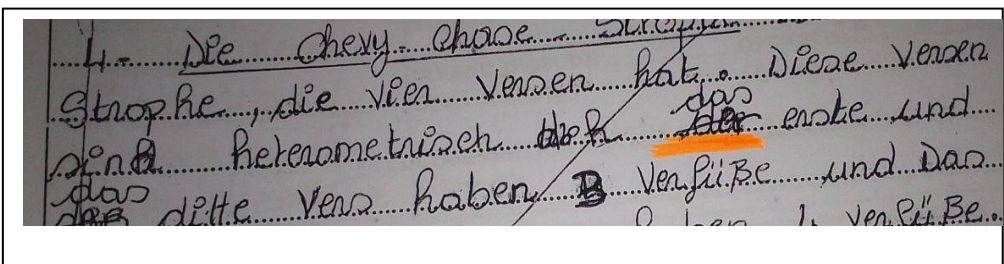 4.- Die Chevy-chase Strophe
Strophe, die vier Versen hat. Diese Versen
sind heterometrisch das erste und
das ditte Vers haben 3 Verfüße und Das
haben 4 Verfüße.